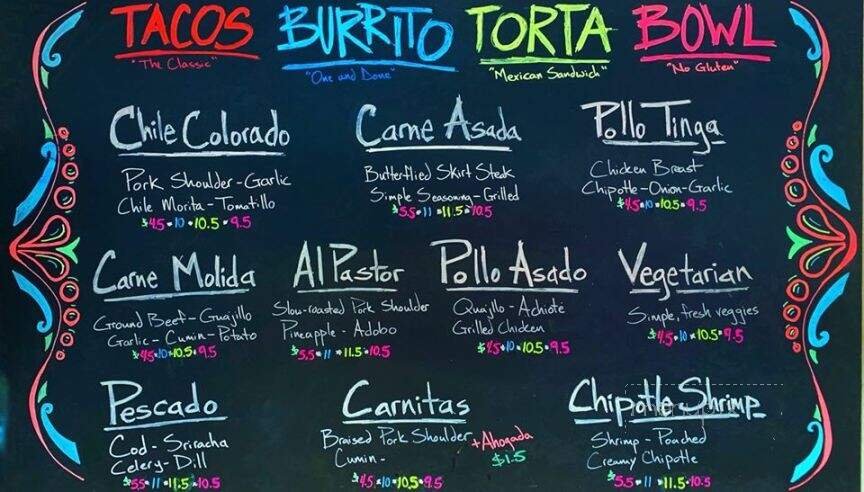 TACOS BURRITO TORTA BOWL
"The Classic" "One and Done" "Mexican Sandwich" "No Gluten"
Chile Colorado
Pork Shoulder - Garlic
Chile Morita - Tomatillo
$4.5 • 10 • 10.5 • 9.5
Carne Asada
Butterflied Skirt Steak
Simple Seasoning - Grilled
$5.5 • 11 • 11.5 • 10.5
Pollo Tinga
Chicken Breast
Chipotle - Onion - Garlic
$4.5 • 10 • 10.5 • 9.5
Carne Molida
Ground Beef - Guajillo
Garlic - Cumin - Potato
$4.5 • 10 • 10.5 • 9.5
Al Pastor
Slow-roasted Pork Shoulder
Pineapple - Adobo
$5.5 • 11 • 11.5 • 10.5
Pollo Asado
Quajillo - Achiote
Grilled Chicken
$4.5 • 10 • 10.5 • 9.5
Vegetarian
Simple, fresh veggies
$4.5 • 10 • 10.5 • 9.5
Pescado
Cod - Sriracha
Celery - Dill
$5.5 • 11 • 11.5 • 10.5
Carnitas
Braised Pork Shoulder
Cumin -
+Ahogada
$1.5
$4.5 • 10 • 10.5 • 9.5
Chipotle Shrimp
Shrimp - Poached
Creamy Chipotle
$5.5 • 11 • 11.5 • 10.5